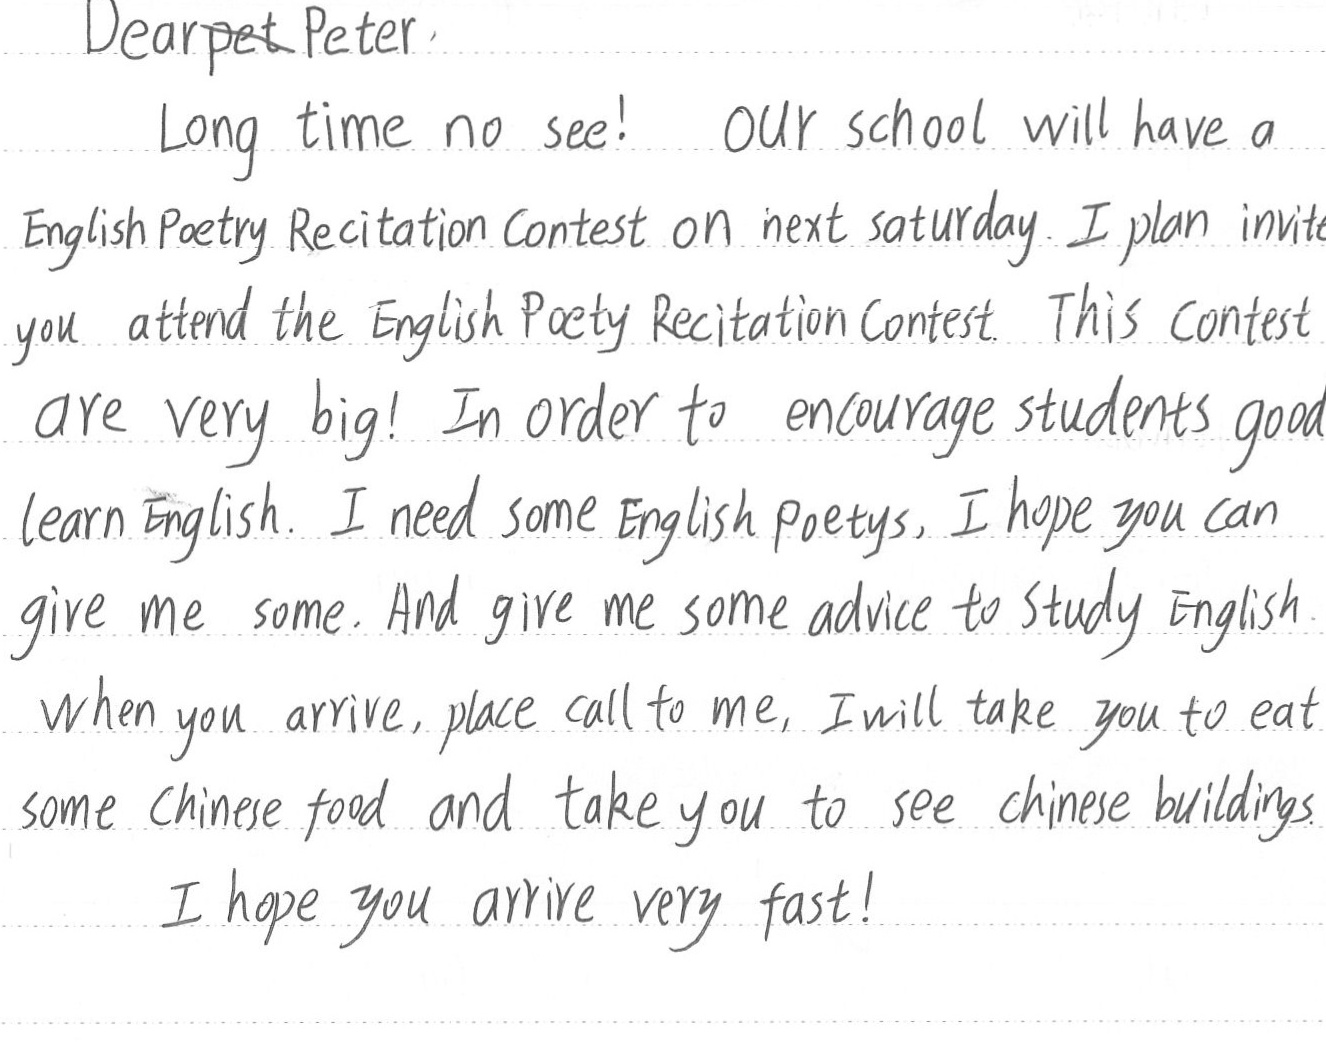 Dear pet Peter,
Long time no see! Our school will have a
English Poetry Recitation Contest on next saturday. I plan invite
you attend the English Poety Recitation Contest. This Contest
are very big! In order to encourage students good
learn English. I need some English Poetys, I hope you can
give me some. And give me some advice to Study English.
When you arrive, place call to me, I will take you to eat
some Chinese food and take you to see chinese buildings.
I hope you arrive very fast!